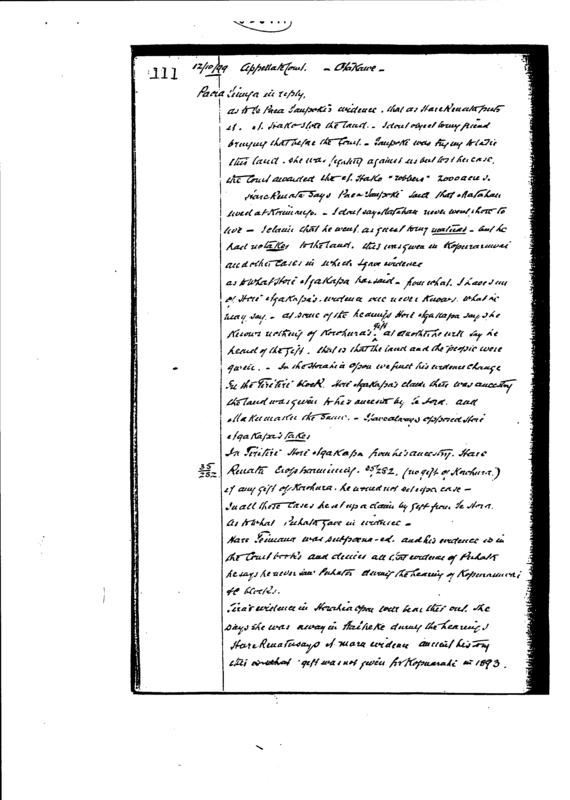 111 12/10/99 Appellate Court. - Otakawe -
Paora Tiunga in reply.
as to the Paea Taupoki's evidence, that as Hare Renata puts
it. N. Hako stole the land. - I dont object to my friend
bringing that before the Court. - Taupoki was trying to take
this land. she was fighting against us but lost her case.
the Court awarded the N. Hako "robbers" 2000 acres.
Hare Renata says Paea Taupoki said that Matahau
lived at - I dont say Matahau never went there to
live - I claim that he went as guest to my matuas - but he
had no takes to the land. this was given in Kopuraruwai
and other cases in which I gave evidence
as to what Hori Ngakapa has said - from what I have seen
of Hori Ngakapa's evidence one never knows what he
may say. - at some of the hearings Hori Ngakapa says he
knows nothing of Korohura's gift at another he will say he
heard of the gift. that is that the land and the people were
given. - In the Horahia Opou we find his evidence change
In the Piritiri block. Hori Ngakapa's claim there was ancestry
the land was given to his ancestor by Te Hora. and
the same. - I have always opposed Hori
Ngakapa's takes
In Piritiri Hori Ngakapa from his ancestry. Hare
35/282 Renata Cross examining. 35/282. (no gift of Korohura.)
if any gift of Korohura. he would not set up a case -
In all those cases he set up a claim by gift from Te Hora.
As to what Puhata gave in evidence -
Hare Teimana was subpoena-ed. and his evidence is in
the Court books and denies all that evidence of Puhata
he says he never saw Puhata during the hearing of Kopuraruwai
&c blocks.
evidence in Horahia Opou will bear this out. She
says she was away in Waiheke during the hearings
Hare Renata says N. mara evidence ancient history
this gift was not given for Kopuarahi in 1893.